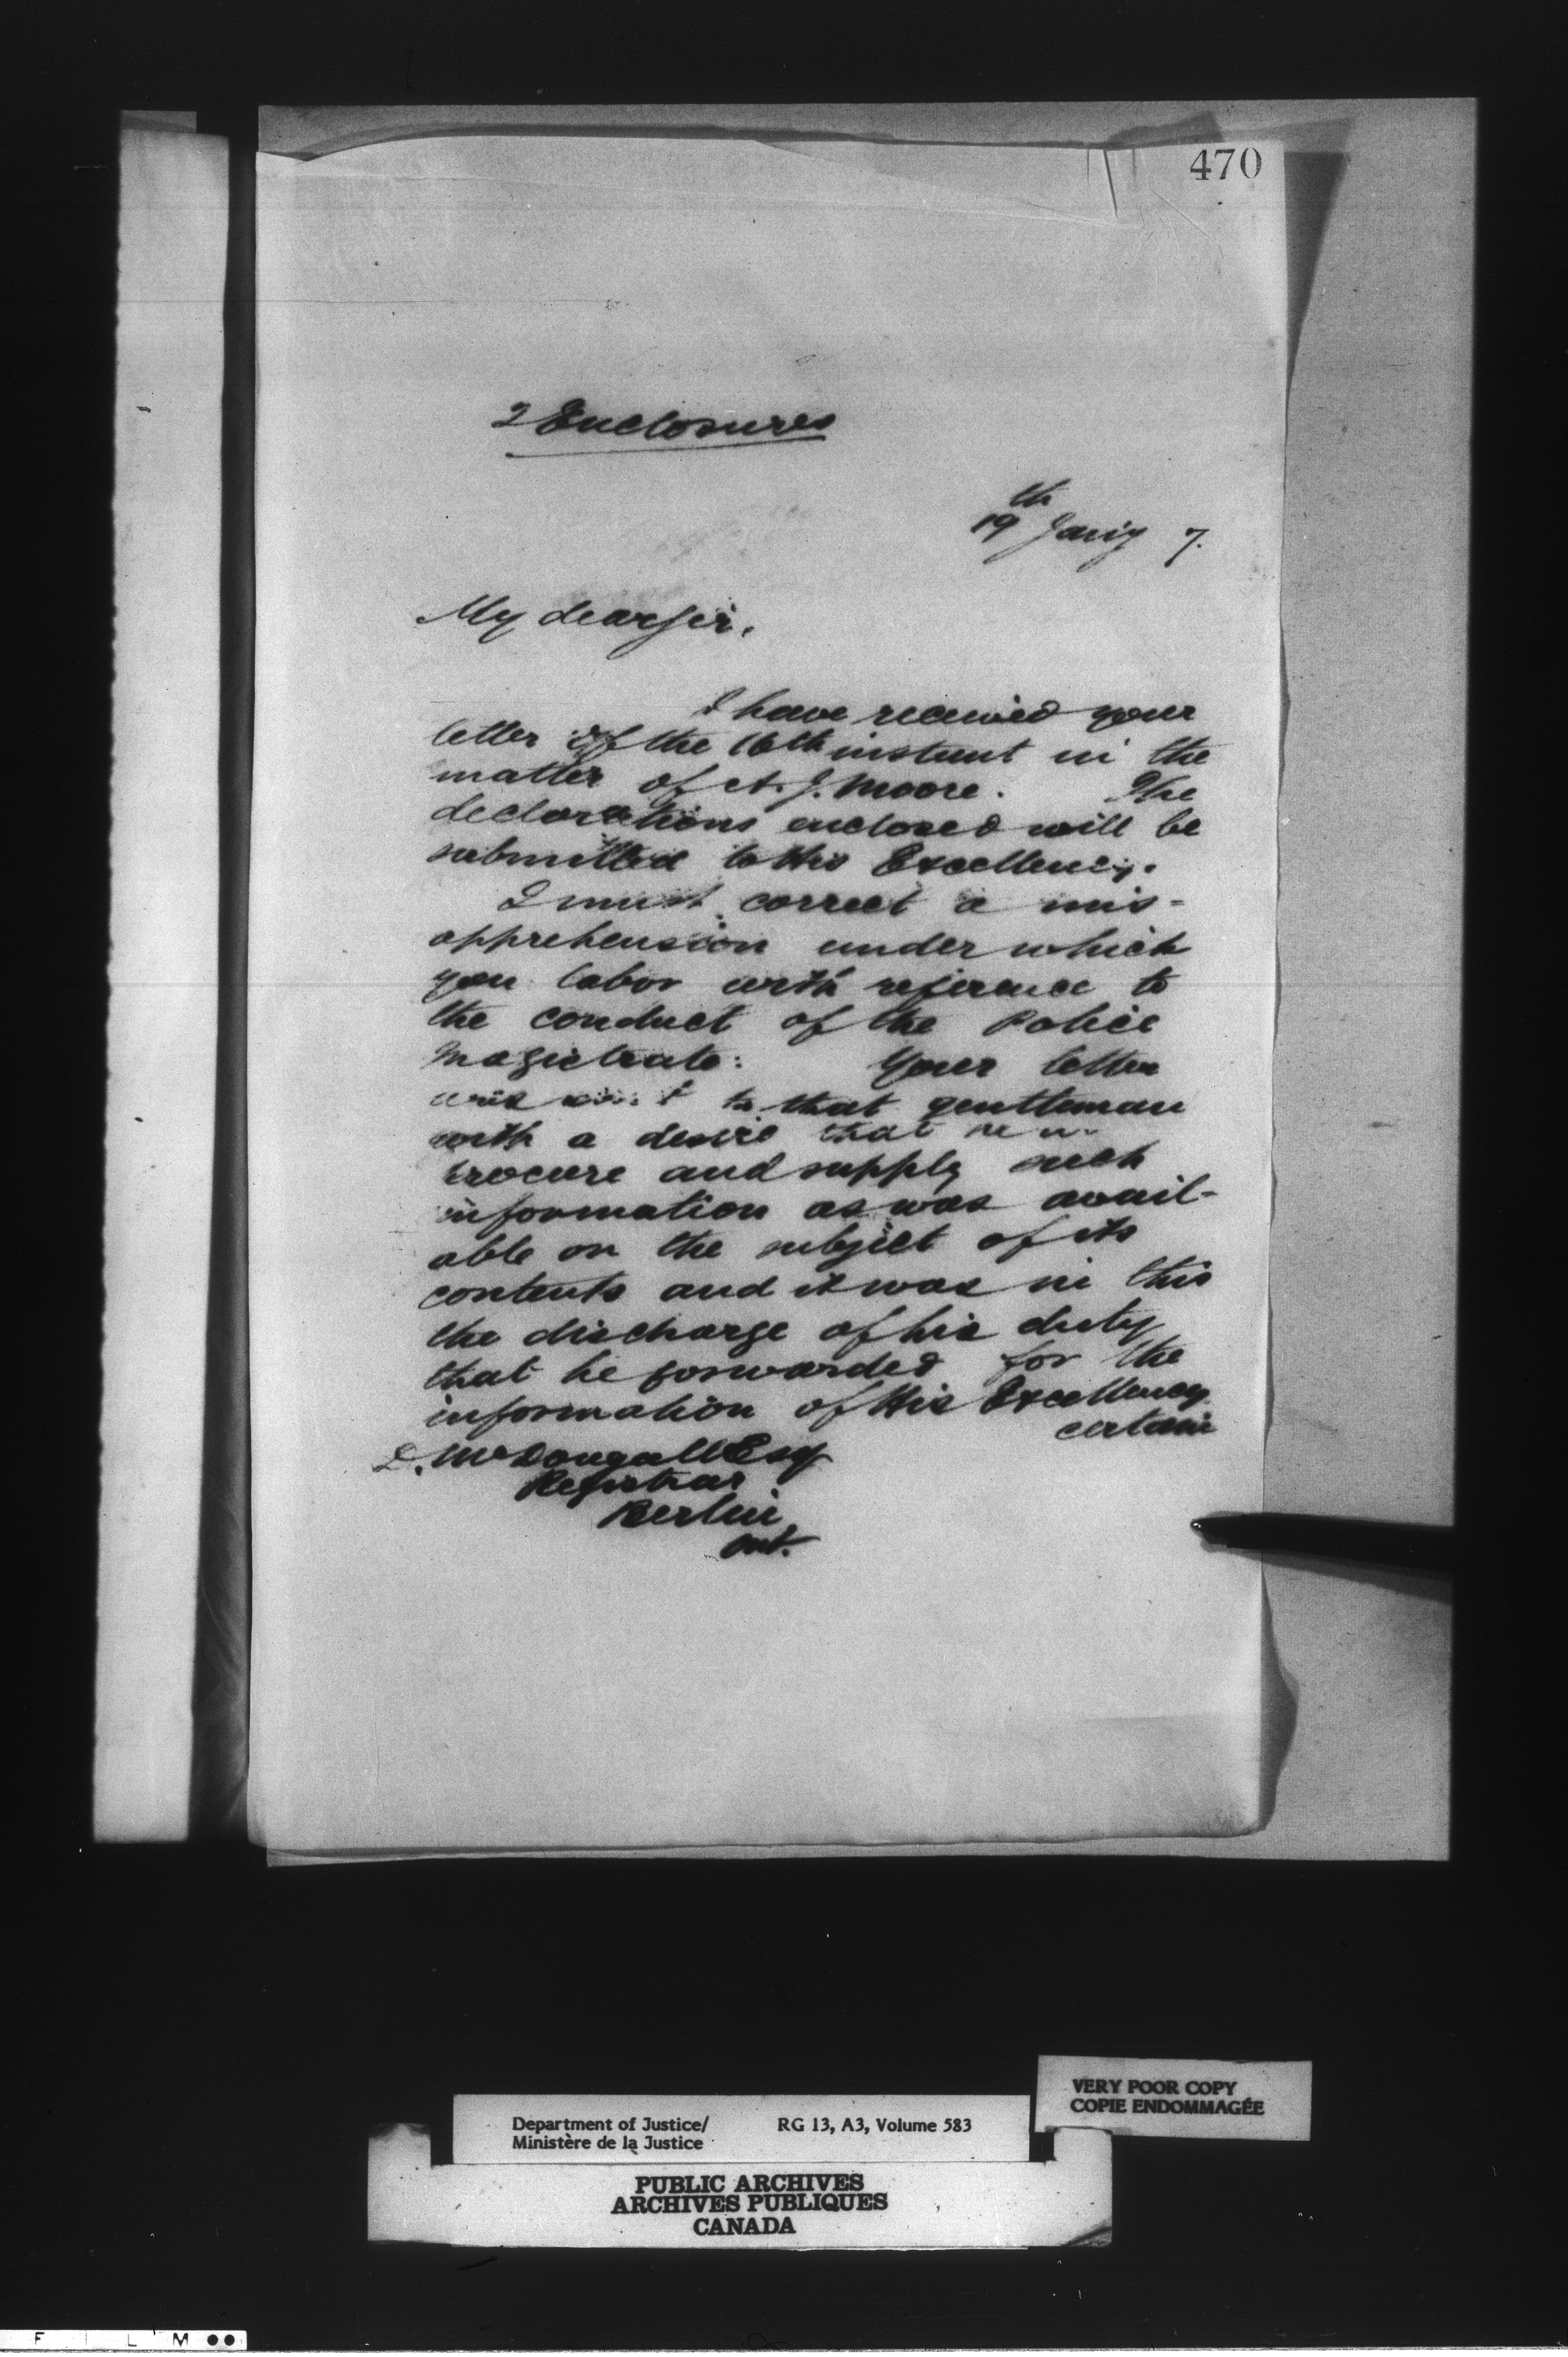 470
2 Enclosures
19th Jany 7.
My dear Sir,
I have received your
letter of the 16th instant in the
matter of A. J. Moore. The
declarations enclosed will be
submitted to His Excellency.
I must correct a mis-
apprehension under which
you labor with reference to
the conduct of the Police
Magistrate: Your letter
was to that gentleman
with a desire that he
procure and supply such
information as was avail-
able on the subject of its
contents and it was in this
the discharge of his duty
that he forwarded for the
information of His Excellency
certain
D. McDougall Esq
Registrar
Berlin
Ont.
VERY POOR COPY
COPIE ENDOMMAGÉE
Department of Justice/ RG 13, A3, Volume 583
Ministère de la Justice
PUBLIC ARCHIVES
ARCHIVES PUBLIQUES
CANADA
F I L M